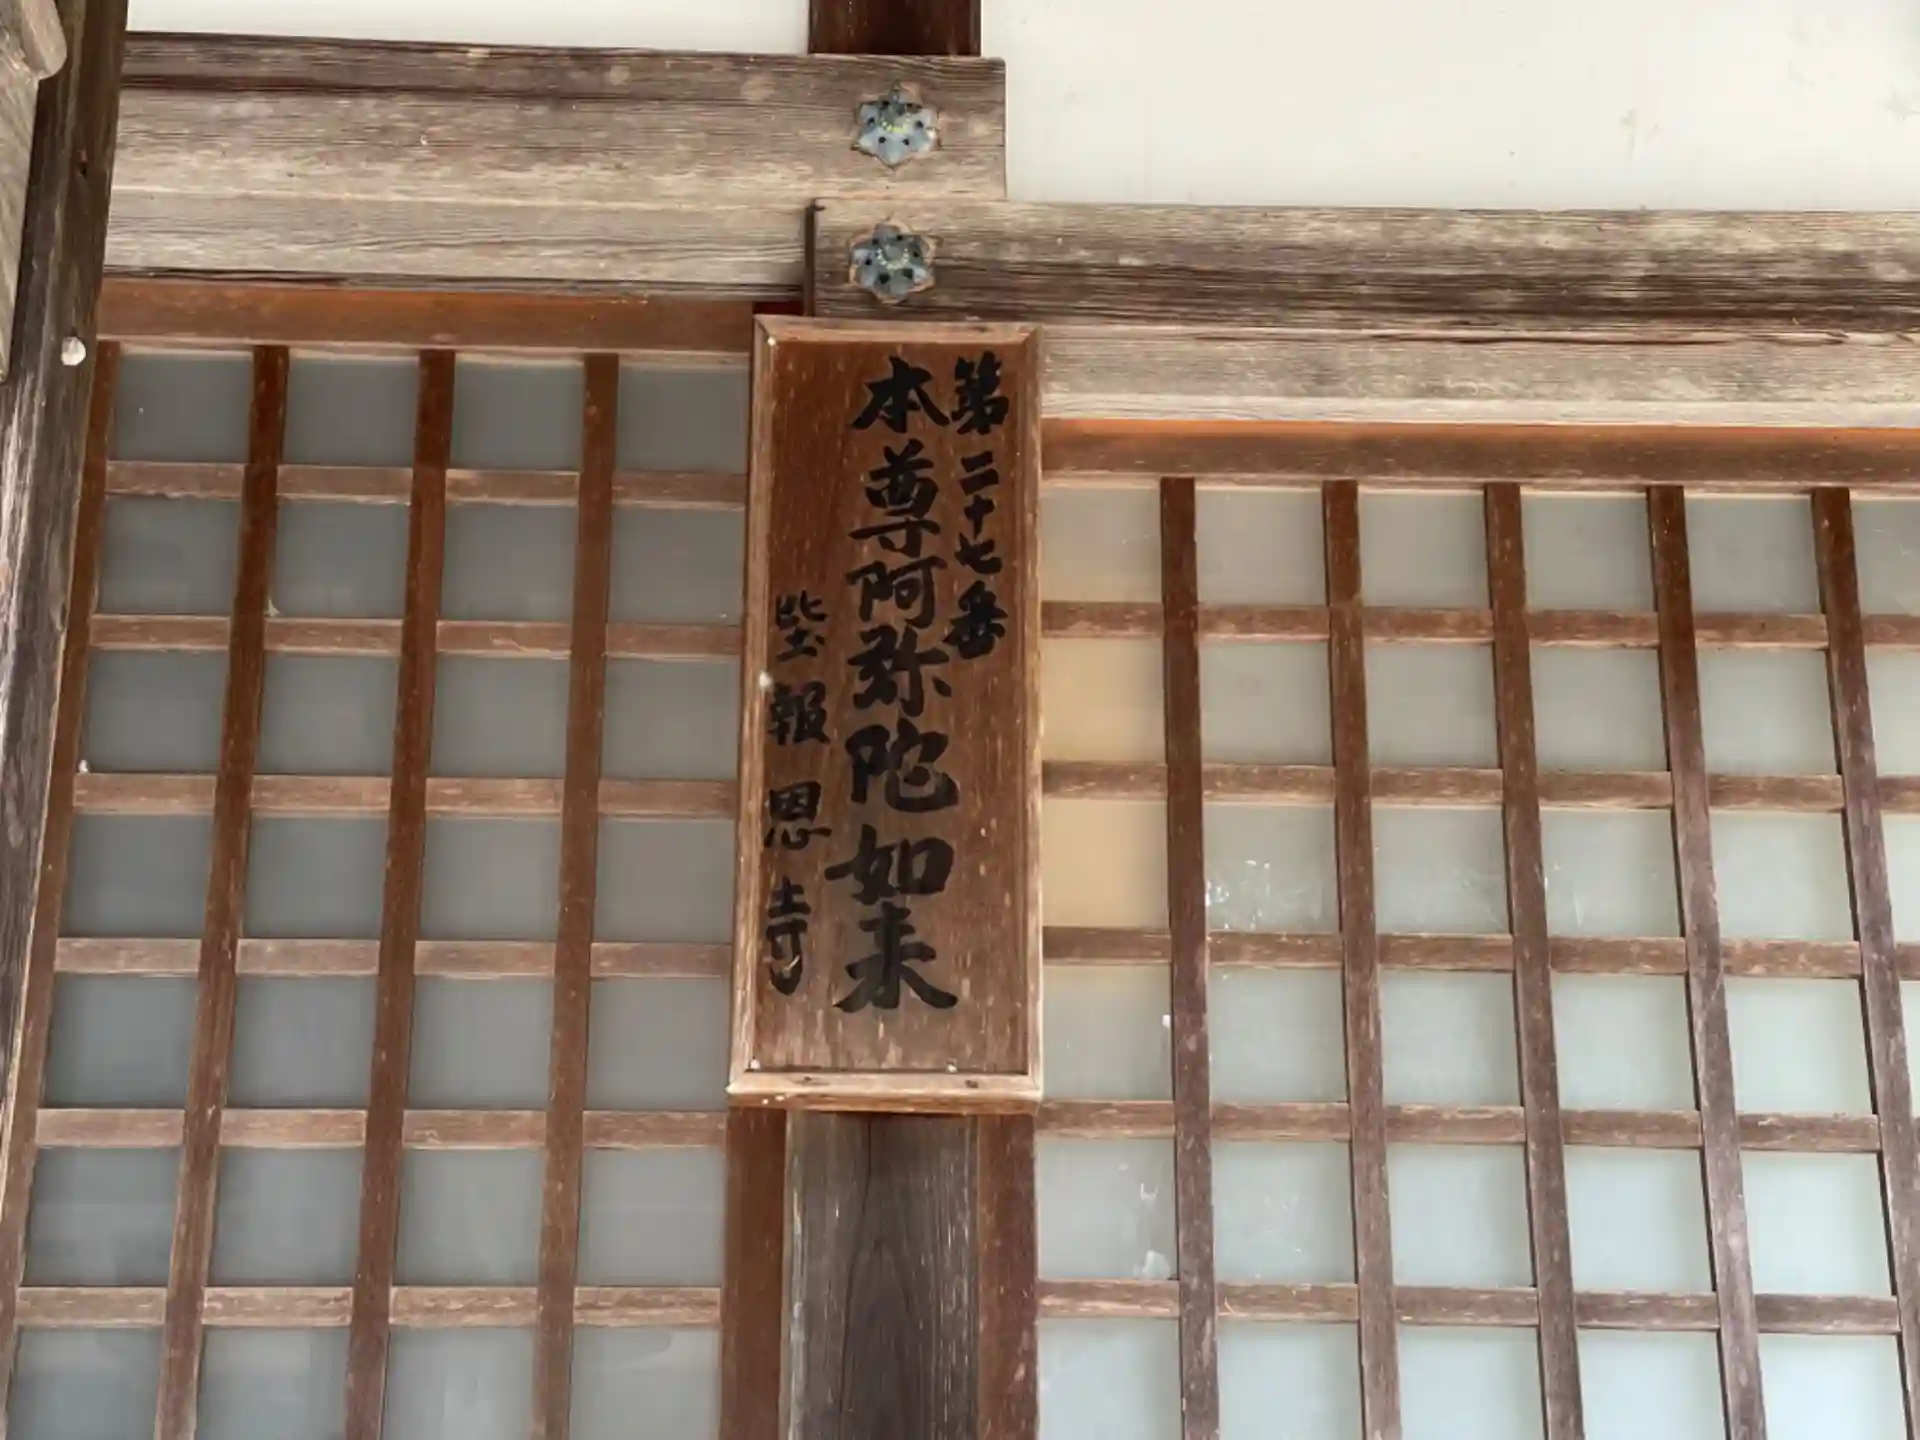 第二十七番
本尊阿弥陀如来
報恩寺